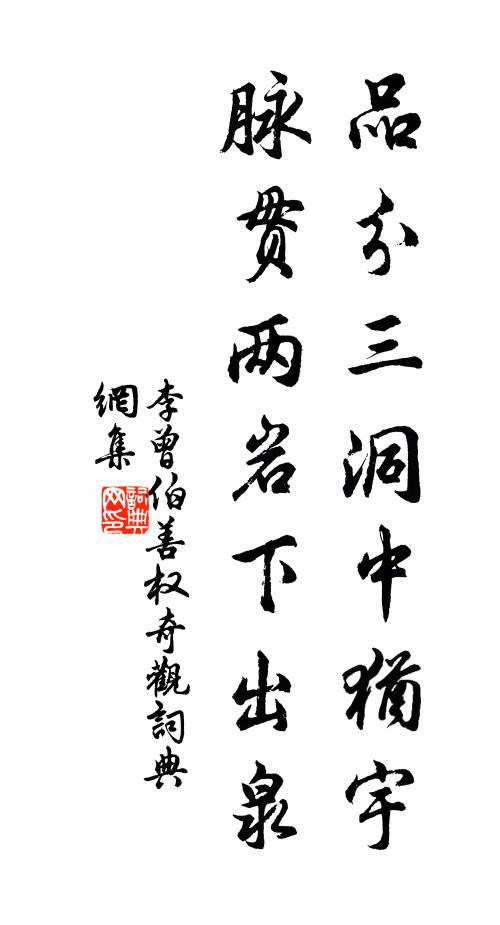 品分三洞中犹宇
脉贯两岩下出泉
李曾伯善权奇觀詞典
網集
詞典网印